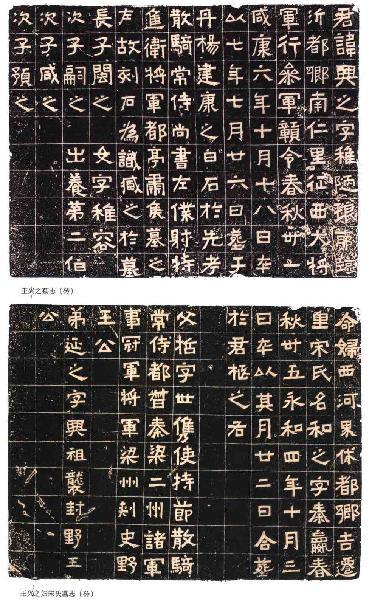 君諱興之字稚陋琅耶臨
沂都鄉南仁里征西大將
軍行參軍贛令春秋卅一
咸康六年十月十八日卒
以七年七月廿六日葬于
丹楊建康之白石於先考
散騎常侍尚書左僕射特
進衛將軍都亭肅侯墓之
左故刻石為識臧之於墓
長子閩之　女字稚容
次子嗣之　出養第二伯
次子咸之
次子預之
王兴之墓志（砖）
命婦西河界休都鄉吉遷
里宋氏名和之字秦嬴春
秋卅五永和四年十月三
日卒以其月廿二日合葬
於君柩之右
父哲字世儁使持節散騎
常侍都督秦梁二州諸軍
事冠軍將軍梁州刺史野
王公
弟延之字興祖襲封野王
公
王兴之妇宋氏墓志（砖）